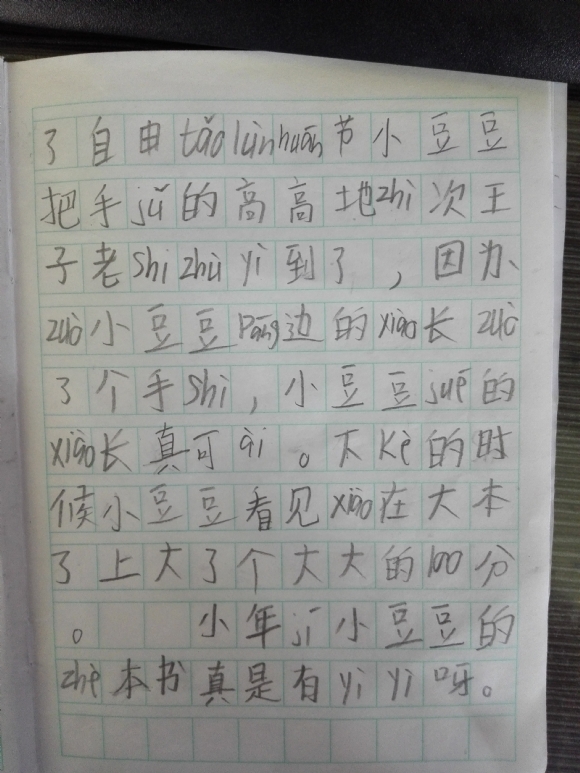 了自由tǎolùnhuán节小豆豆
把手jǔ的高高地zhǐ次王
子老shīzhùyì到了，因为
zuò小豆豆páng边的xiào长zuò
了个手shì，小豆豆jué的
xiào长真可ài。下Kè的时
候小豆豆看见xiào在大本
了上大了个大大的100分
。小年jí小豆豆的
zhè本书真是有yìyì呀。